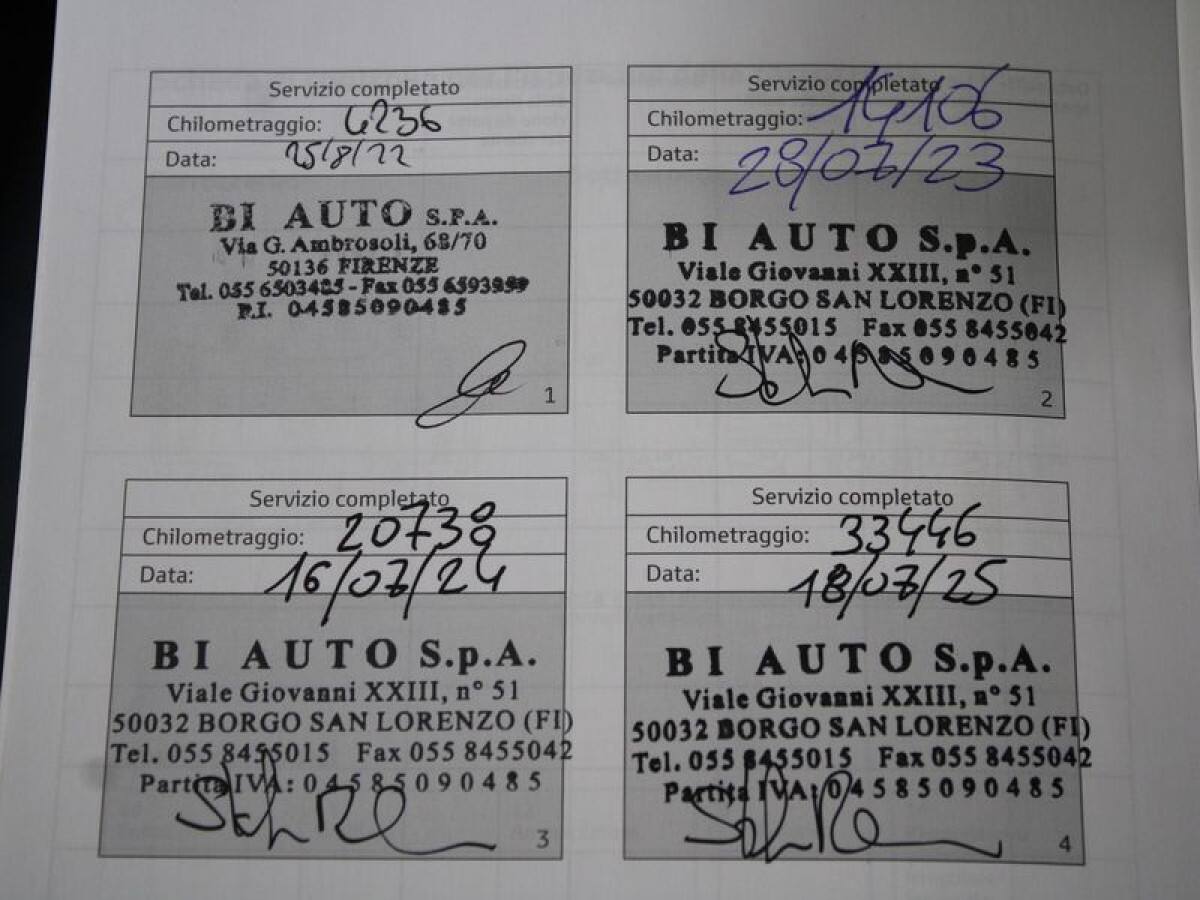 Servizio completato
Chilometraggio: 6236
Data: 25/8/22
BI AUTO S.P.A.
Via G. Ambrosoli, 68/70
50136 FIRENZE
Tel. 055 6503425 - Fax 055 6593959
P.I. 04585090485
1
Servizio completato
Chilometraggio: 14106
Data: 28/07/23
BI AUTO S.p.A.
Viale Giovanni XXIII, n° 51
50032 BORGO SAN LORENZO (FI)
Tel. 055 8455015 Fax 055 8455042
Partita IVA: 04585090485
2
Servizio completato
Chilometraggio: 20738
Data: 16/07/24
BI AUTO S.p.A.
Viale Giovanni XXIII, n° 51
50032 BORGO SAN LORENZO (FI)
Tel. 055 8455015 Fax 055 8455042
Partita IVA: 04585090485
3
Servizio completato
Chilometraggio: 33446
Data: 18/07/25
BI AUTO S.p.A.
Viale Giovanni XXIII, n° 51
50032 BORGO SAN LORENZO (FI)
Tel. 055 8455015 Fax 055 8455042
Partita IVA: 04585090485
4